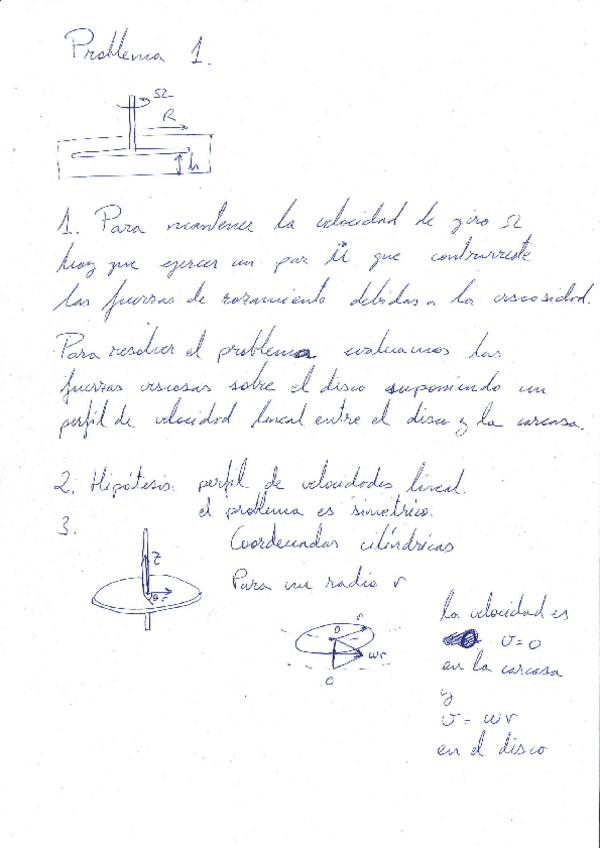 Problema 1.
Ω
R
h
1. Para mantener la velocidad de giro Ω
hay que ejercer un par que contrarreste
las fuerzas de rozamiento debidas a la viscosidad.
Para resolver el problema evaluamos las
fuerzas viscosas sobre el disco suponiendo un
perfil de velocidad lineal entre el disco y la carcasa.
2. Hipótesis: perfil de velocidades lineal.
el problema es simétrico.
3.
Coordenadas cilíndricas
z
θ r
Para un radio r
r
0
ωr
0
la velocidad es
v=0
en la carcasa
y
v = ωr
en el disco